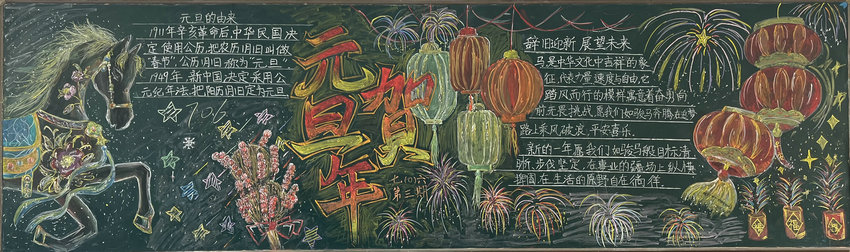 元旦的由来
1911年辛亥革命后中华民国决
定使用公历,把农历1月1日叫做
"春节",公历1月1日称为"元旦"
1949年,新中国决定采用公
元纪年法,把阳历1月1日定为元旦
706
元旦
贺年
七(10)
第三期
辞旧迎新 展望未来
马是中华文化中吉祥的象
征,代表力量、速度与自由,它
踏风而行的模样寓意着奋勇向
前无畏挑战,愿我们如骏马奔腾在追梦
路上乘风破浪,平安喜乐.
新的一年愿我们如骏马般目标清
晰,步伐坚定,在事业的疆场上纵横
驰
在生活的原野自在徜徉.